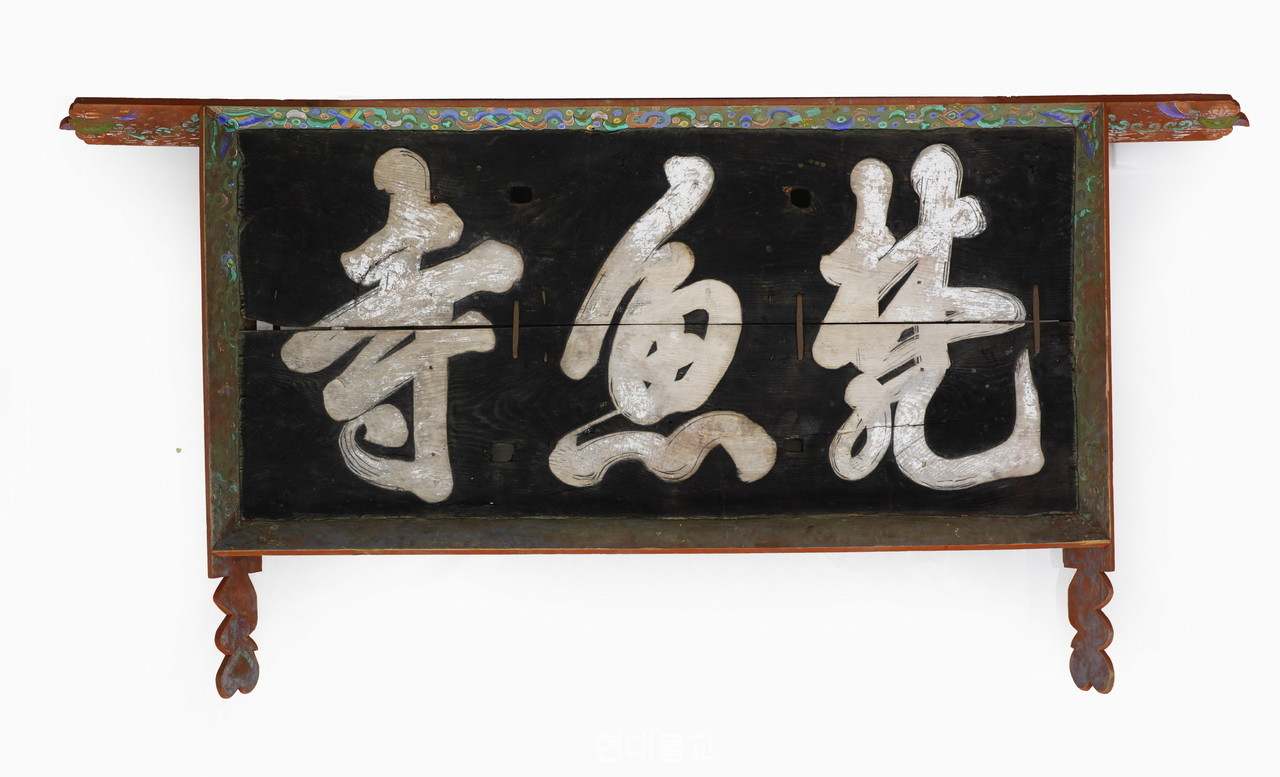 梵魚寺
현대불교